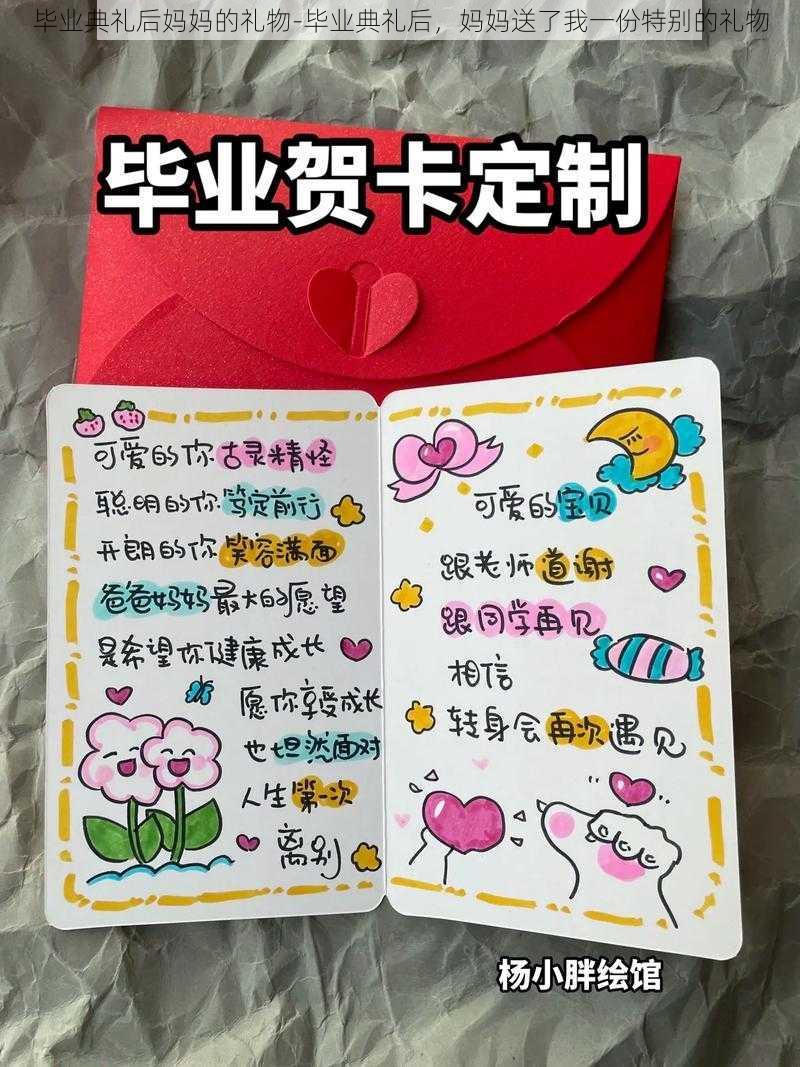 毕业典礼后妈妈的礼物-毕业典礼后，妈妈送了我一份特别的礼物
毕业贺卡定制
可爱的你古灵精怪
聪明的你笃定前行
开朗的你笑容满面
爸爸妈妈最大的愿望
是希望你健康成长
愿你享受成长
也坦然面对
人生第一次
离别
可爱的宝贝
跟老师道谢
跟同学再见
相信
转身会再次遇见
杨小胖绘馆